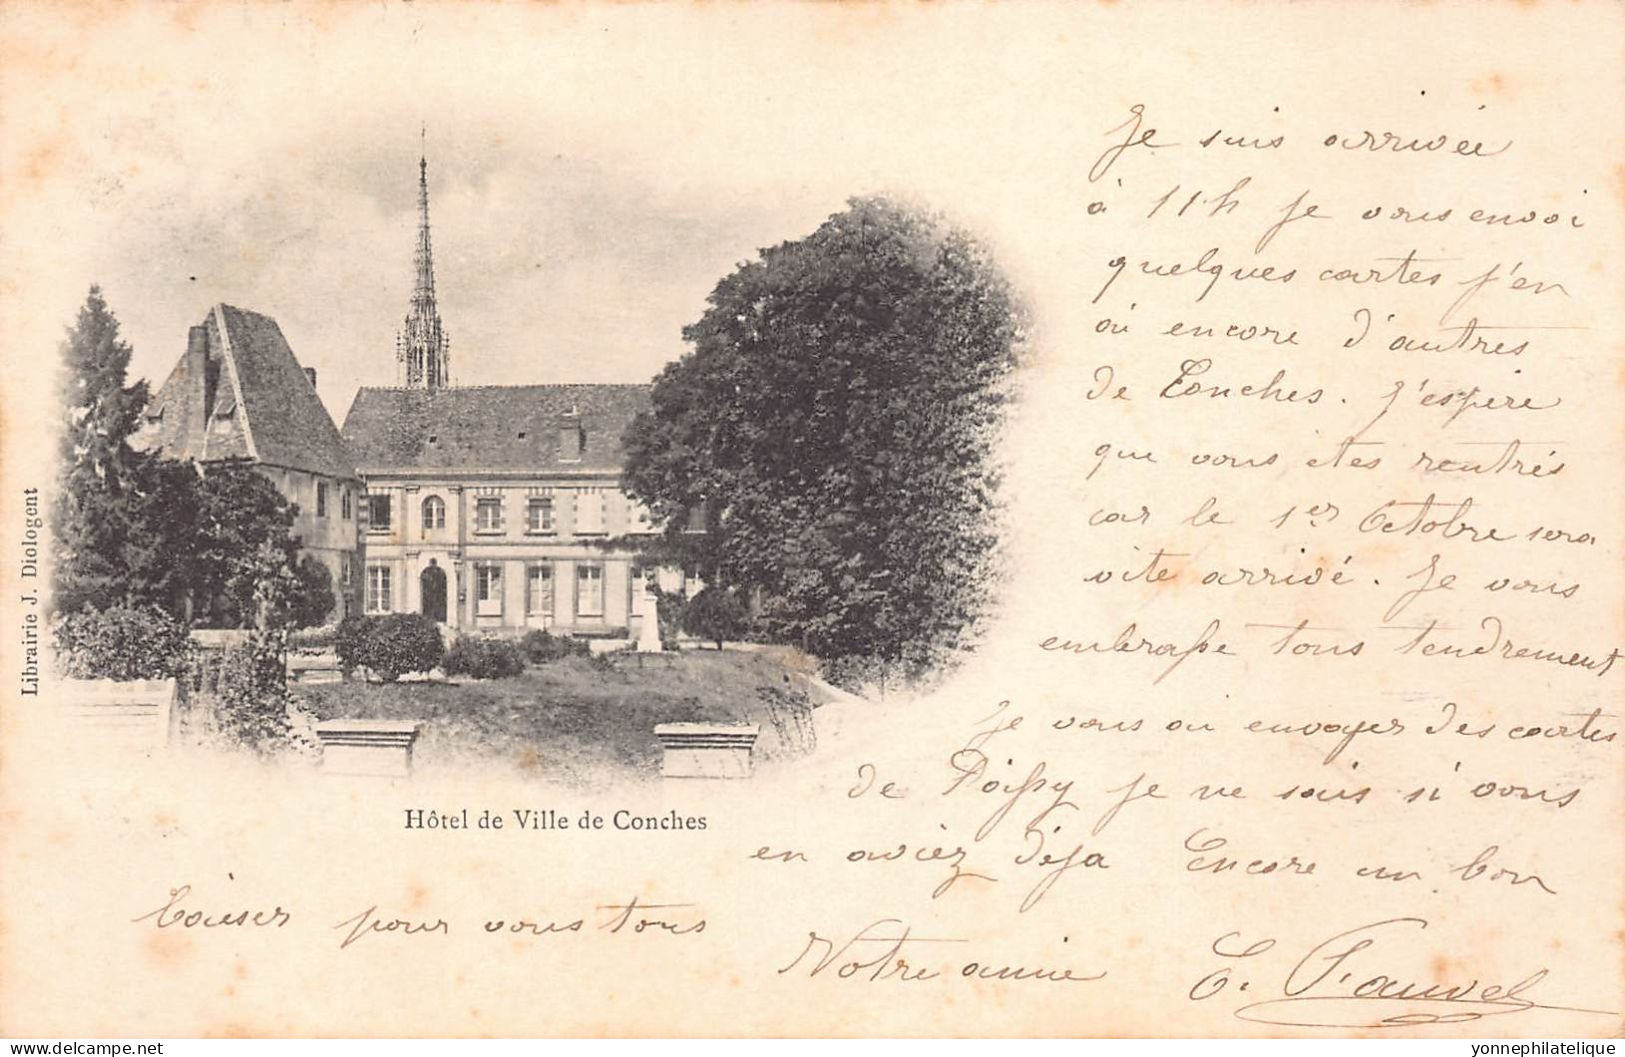 Je suis arrivée
à 11h je vous envoi
quelques cartes j'en
ai encore d'autres
de Conches. J'espère
que vous êtes rentrés
car le 1er Octobre sera
vite arrivé. Je vous
embrasse tous tendrement
Je vous ai envoyer des cartes
de Poissy je ne sais si vous
en aviez déja Encore un bon
baiser pour vous tous
Notre amie E. Fauvel
Hôtel de Ville de Conches
Librairie J. Diologent
delcampe.net
yonnephilatelique